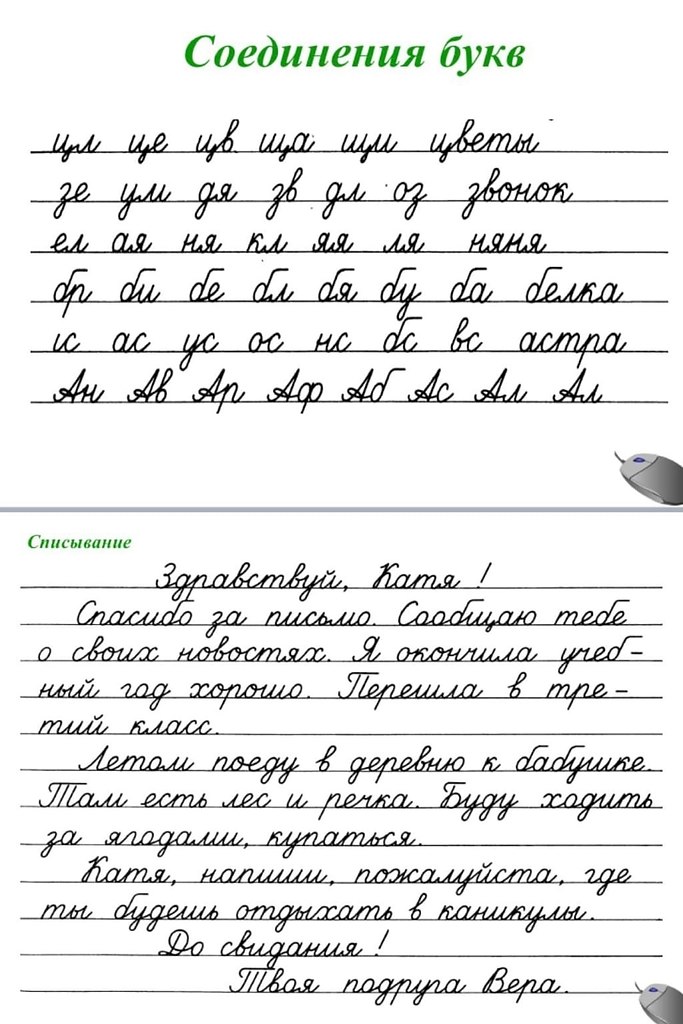 Соединения букв
цл це цв ща щи цветы
зе ум дя зв дл оз звонок
ел ая ня кл яя ля няня
бр би бе бл бя бу ба белка
ас ус ос нс бс вс астра
Ан Ав Ар Аф Аб Ас Ал Ал
Списывание
Здравствуй, Катя!
Спасибо за письмо. Сообщаю тебе
о своих новостях. Я окончила учеб-
ный год хорошо. Перешла в тре-
тий класс.
Летом поеду в деревню к бабушке.
Там есть лес и речка. Буду ходить
за ягодами, купаться.
Катя, напиши, пожалуйста, где
ты будешь отдыхать в каникулы.
До свидания!
Твоя подруга Вера.